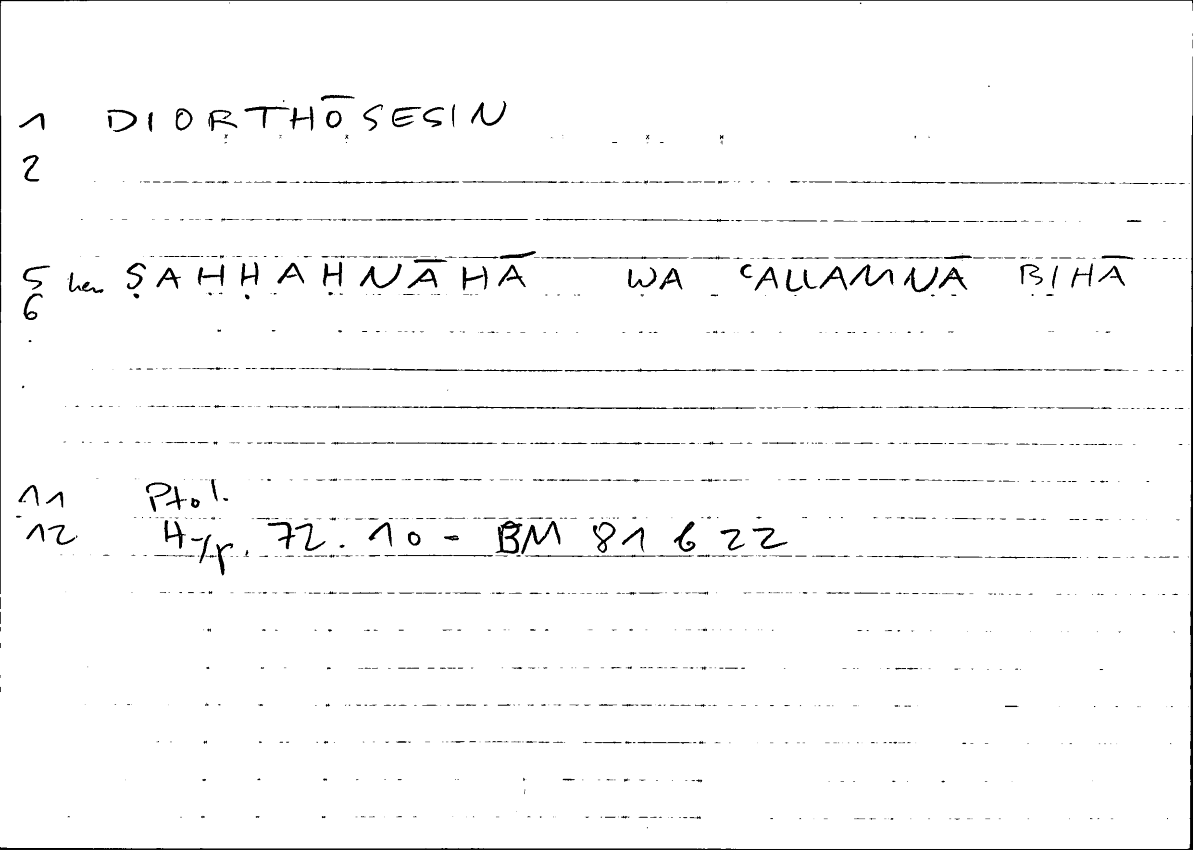 1 DIORTHŌSESIN
2
5 hen ṢAḤḤAḤNĀHĀ WA ʿALLAMNĀ BIHĀ
6
11 Ptol.
12 Hyp. 72.10 - BM 81 b 22